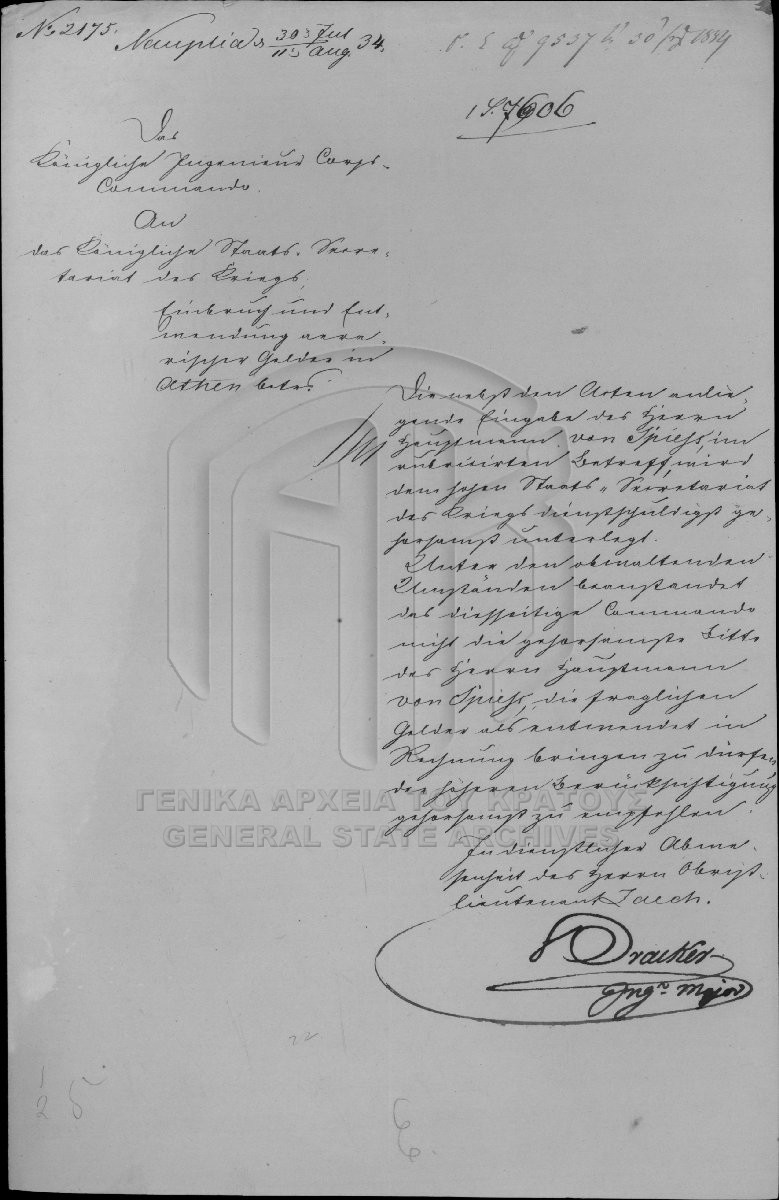 No 2175.
Nauplia d 30t Jul / 11t Aug. 34.
9537 30 1834
7606
Das
Königliche Ingenieur Corps-
Commando.
An
das Königliche Staats-Secre-
tariat des Kriegs,
Einbruch und Ent-
wendung aera-
rischer Gelder in
Athen betr.
Die nebst den Acten anlie-
gende Eingabe des Herrn
Hauptmann von Spiess, im
rubricirten Betreff, wird
dem hohen Staats-Secretariat
des Kriegs dienstschuldigst ge-
horsamst unterlegt.
Unter den obwaltenden
Umständen beanstandet
das diesseitige Commando
nicht die gehorsamste Bitte
des Herrn Hauptmann
von Spiess, die fraglichen
Gelder als entwendet in
Rechnung bringen zu dürfen
der höheren Berücksichtigung
gehorsamst zu empfehlen.
In dienstlicher Abwe-
senheit des Herrn Obrist-
lieutenant Zaech.
Ingr Major
ΓΕΝΙΚΑ ΑΡΧΕΙΑ ΤΟΥ ΚΡΑΤΟΥΣ
GENERAL STATE ARCHIVES